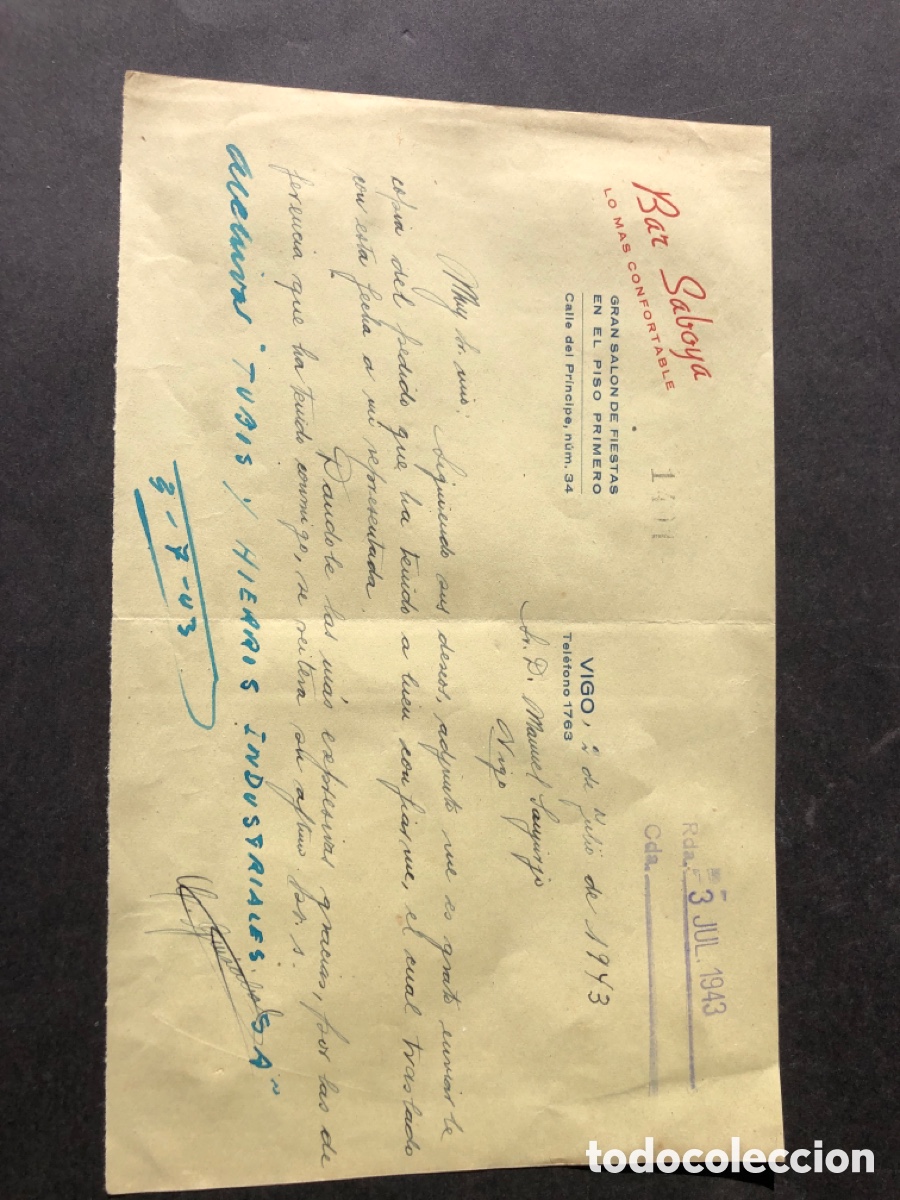 Bar Saboya
LO MAS CONFORTABLE
GRAN SALON DE FIESTAS
EN EL PISO PRIMERO
Calle del Príncipe, núm. 34
1401
Teléfono 1763
VIGO, 2 de Julio de 1943
Rda. 3 JUL. 1943
Cda.
Sr. D. Manuel Sanjurjo
Vigo
Muy Sr. mio: Siguiendo sus deseos, adjunto me es grato enviarle
copia del pedido que ha tenido a bien confiarme, el cual traslado
con esta fecha a mi representada.
Dandole las más expresivas gracias, por las de
ferencia que ha tenido conmigo, se reitera su aftmo. s. s.
"TUBIS Y HIERROS INDUSTRIALES. SA"
3-7-43
todocoleccion